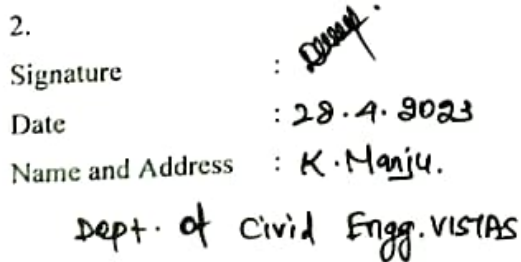 2.
Signature :
Date : 28.4.2023
Name and Address : K.Manju.
Dept. of Civid Engg. VISTAS